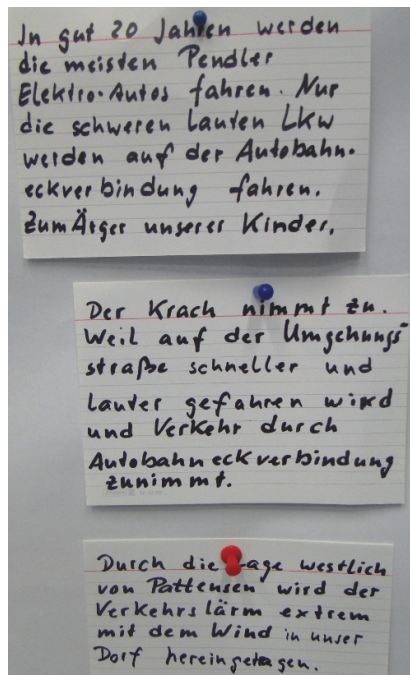 In gut 20 Jahren werden
die meisten Pendler
Elektro-Autos fahren. Nur
die schweren lauten LKW
werden auf der Autobahn-
eckverbindung fahren.
Zum Ärger unserer Kinder.
Der Krach nimmt zu.
Weil auf der Umgehungs-
straße schneller und
lauter gefahren wird
und Verkehr durch
Autobahneckverbindung
zunimmt.
Durch die Lage westlich
von Pattensen wird der
Verkehrslärm extrem
mit dem Wind in unser
Dorf hereingetragen.